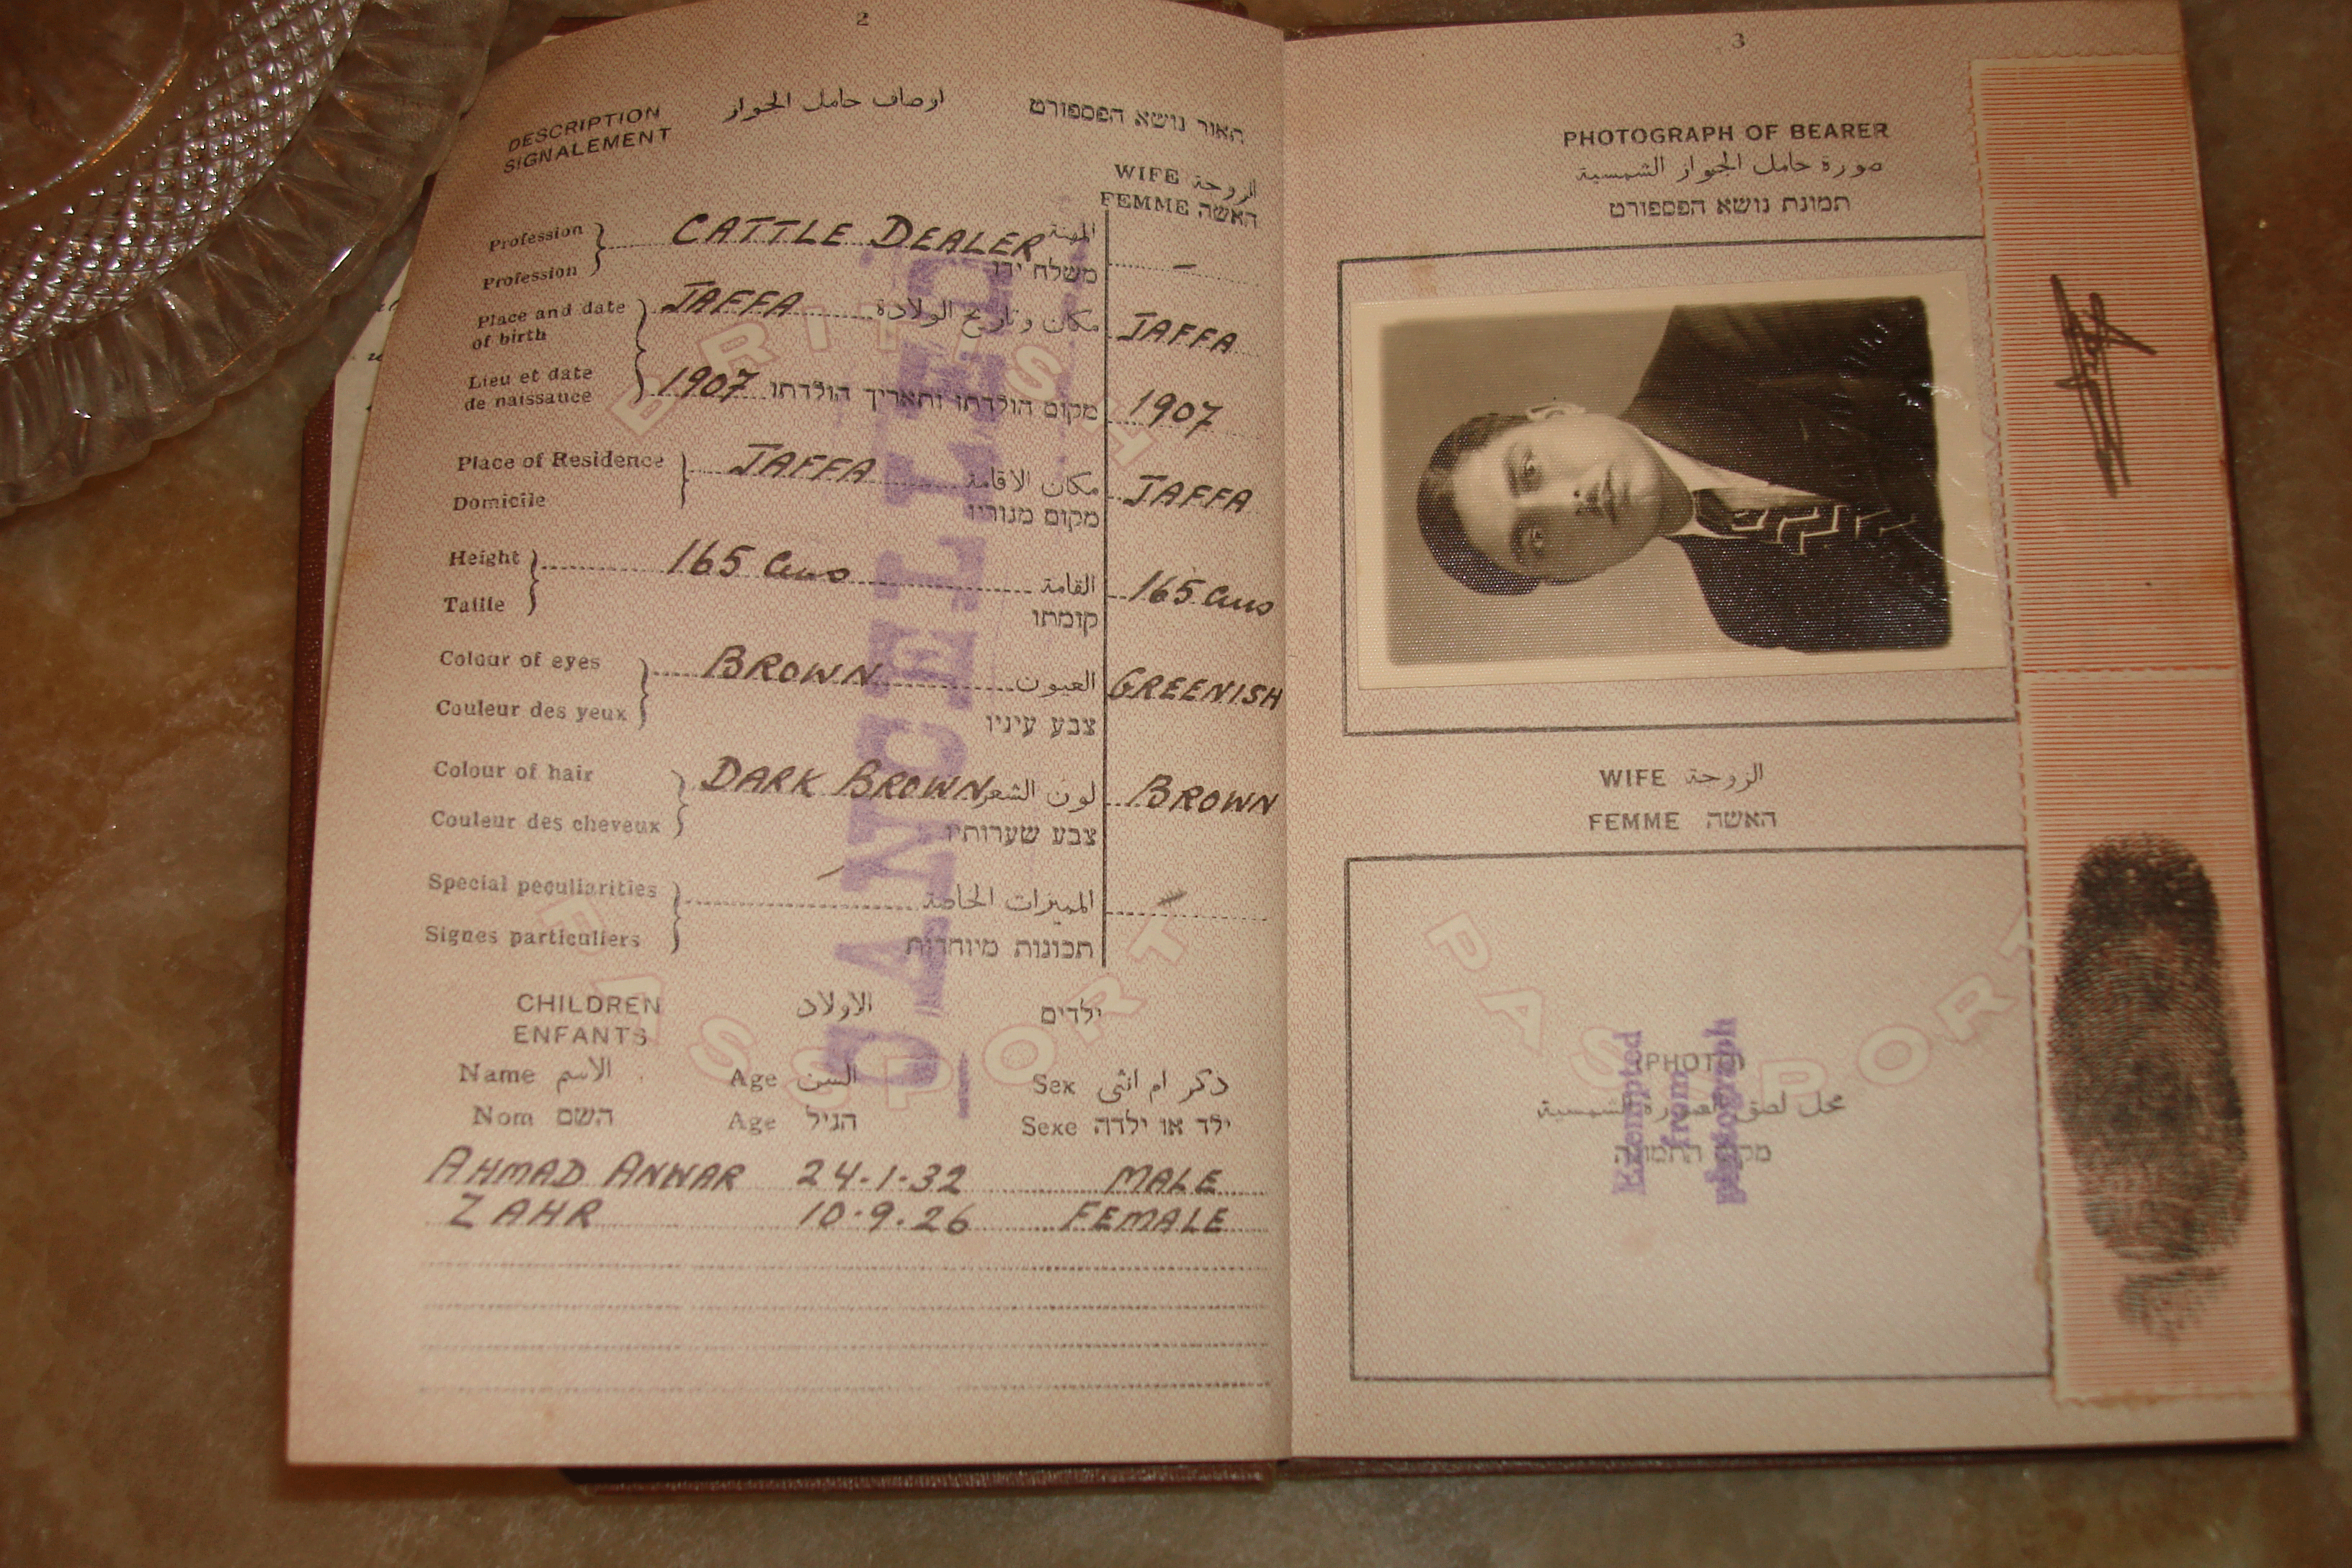 2
DESCRIPTION اوصاف حامل الجواز תאור נושא הפספורט
SIGNALEMENT
WIFE الزوجة
FEMME האשה
Profession CATTLE DEALER المهنة –
Profession משלח ידו
Place and date of birth JAFFA مكان وتاريخ الولادة JAFFA
Lieu et date de naissance 1907 מקום הולדתו ותאריך הולדתו 1907
Place of Residence JAFFA مكان الاقامة JAFFA
Domicile מקום מגוריו
Height 165 cms القامة 165 cms
Taille קומתו
Colour of eyes BROWN العيون GREENISH
Couleur des yeux צבע עיניו
Colour of hair DARK BROWN لون الشعر BROWN
Couleur des cheveux צבע שערותיו
Special peculiarities المميزات الخاصة
Signes particuliers תכונות מיוחדות
CHILDREN الاولاد ילדים
ENFANTS
Name الاسم Age السن Sex ذكر ام انثى
Nom השם Age הגיל Sexe ילד או ילדה
AHMAD ANWAR 24.1.32 MALE
ZAHR 10.9.26 FEMALE
CANCELLED
BRITISH
PASSPORT
3
PHOTOGRAPH OF BEARER
صورة حامل الجواز الشمسية
תמונת נושא הפספורט
WIFE الزوجة
FEMME האשה
(PHOTO)
محل لصق الصورة الشمسية
מקום התמונה
Exempted
from
photograph
PASSPORT